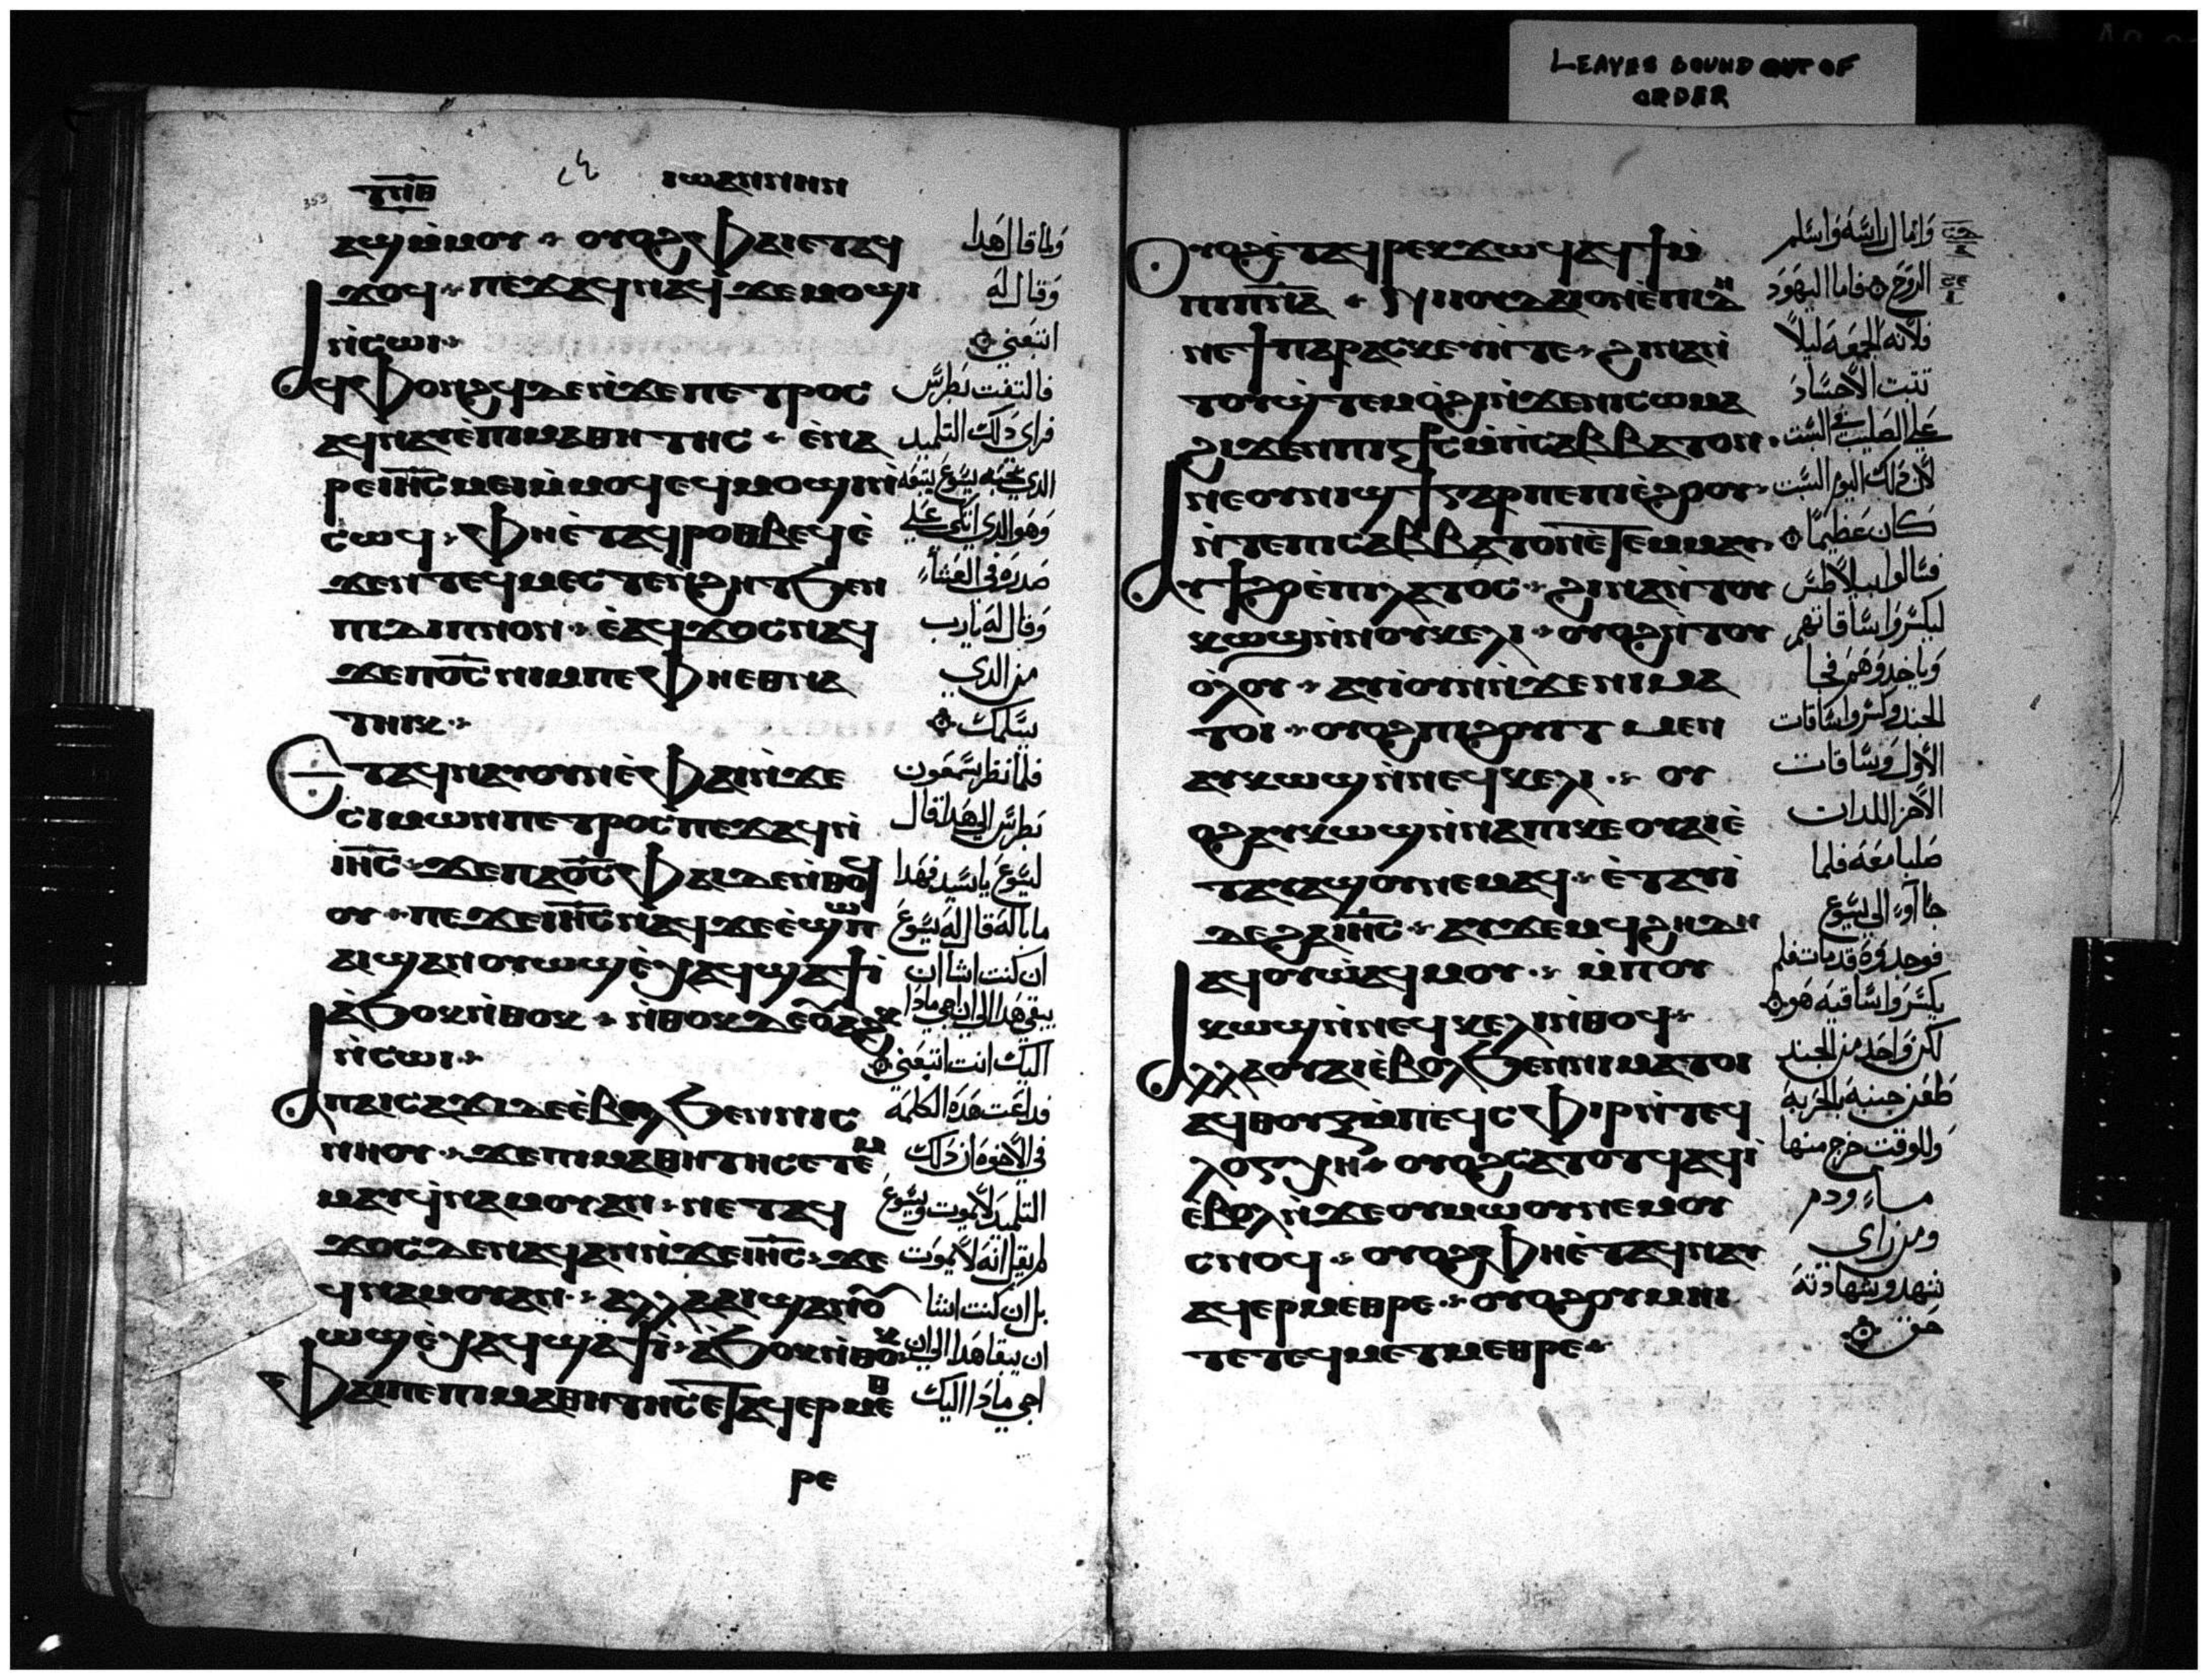 LEAVES BOUND OUT OF
ORDER
ⲓⲱⲁⲛⲛⲏⲛ
353
ⲁϣ ⲙ̀ⲙⲟⲩ ⲟⲩⲟϩ ⲫⲁⲓ ⲉⲧⲁϥ
ϫⲟϥ ⲡⲉϫⲁϥ ⲛⲁϥ ϫⲉ ⲙⲟϣⲓ
ⲛ̀ⲥⲱⲓ
ⲁϥⲫⲟⲛϩϥ ⲇⲉ ⲛ̀ϫⲉ ⲡⲉⲧⲣⲟⲥ
ⲁϥⲛⲁⲩ ⲉ̀ⲡⲓⲙⲁⲑⲏⲧⲏⲥ ⲉ̀ⲛⲁ
ⲣⲉ ⲓⲏ̅ⲥ̅ ⲙⲉⲓ ⲙ̀ⲙⲟϥ ⲉϥⲙⲟϣⲓ ⲛ̀
ⲥⲱϥ ⲫⲏ ⲉ̀ⲧⲁϥⲣⲟⲑⲃⲉϥ ⲉ̀
ϫⲉⲛ ⲧⲉϥⲙⲉⲥⲧⲉⲛϩⲏⲧ ϧⲉⲛ
ⲡⲓⲇⲓⲡⲛⲟⲛ ⲉ̀ⲁϥϫⲟⲥ ⲛⲁϥ
ϫⲉ ⲡⲟ̅ⲥ̅ ⲛⲓⲙ ⲡⲉ ⲫⲏ ⲉⲑⲛⲁ
ⲧⲏⲓⲕ
ⲉⲧⲁϥⲛⲁⲩ ⲟⲩⲛ ⲉ̀ⲫⲁⲓ ⲛ̀ϫⲉ
ⲥⲓⲙⲱⲛ ⲡⲉⲧⲣⲟⲥ ⲡⲉϫⲁϥ ⲛ̀
ⲓⲏ̅ⲥ̅ ϫⲉ ⲡⲁⲟ̅ⲥ̅ ⲫⲁⲓ ⲇⲉ ⲛ̀ⲑⲟϥ
ⲟⲩ ⲡⲉϫⲉ ⲓⲏ̅ⲥ̅ ⲛⲁϥ ϫⲉ ⲉ̀ϣⲱⲡ
ⲁⲓϣⲁⲛⲟⲩⲱϣ ⲉ̀ⲭⲁϥ ϣⲁϯⲓ̀
ⲁϧⲟⲕ ⲛ̀ⲑⲟⲕ ⲛ̀ⲑⲟⲕ ⲇⲉ ⲟⲩⲁϩⲕ
ⲛ̀ⲥⲱⲓ
ⲁ ⲡⲁⲓⲥⲁϫⲓ ⲇⲉ ⲉ̀ⲃⲟⲗ ϧⲉⲛ ⲛⲓⲥ
ⲛⲏⲟⲩ ϫⲉ ⲡⲓⲙⲁⲑⲏⲧⲏⲥ ⲉⲧⲉ̀ⲙ
ⲙⲁⲩ ϥ̀ⲛⲁⲙⲟⲩ ⲁⲛ ⲛⲉⲧⲁϥ
ϫⲟⲥ ⲇⲉ ⲛⲁϥ ⲁⲛ ⲛ̀ϫⲉ ⲓⲏ̅ⲥ̅ ϫⲉ
ϥⲛⲁⲙⲟⲩ ⲁⲛ ⲁⲗⲗⲁ ⲁⲓϣⲁⲛⲟⲩ
ⲱϣ ⲉ̀ⲭⲁϥ ϣⲁϯⲓ̀ ⲁ̀ϧⲟⲕ ⲛ̀ⲑⲟⲕ
ⲫⲁⲓ ⲡⲉ ⲡⲓⲙⲁⲑⲏⲧⲏⲥ ⲉ̀ⲧⲁϥⲉⲣⲙⲉⲑ
ⲣⲉ
ولما قال هذا
وقال له
اتبعني
فالتفت بطرس
فراى ذلك التلميد
الدي يحبه يسوع يتبعه
وهو الدي اتكى علي
صدره في العشاء
وقال له يارب
من الدي
يسلمك
فلما نظر سمعون
بطرس الي هدا قال
ليسوع يا سيد فهدا
ما باله قال له يسوع
ان كنت اشا ان
يبقي هدا الي ان اجي مادا
اليك انت اتبعني
فداعت هده الكلمة
في الاخوه ان دلك
التلميد لا يموت ويسوع
لم يقل انه لا يموت
بل ان كنت اشا
ان يبقا هدا الي ان
اجي مادا اليك
ⲟⲩⲟϩ ⲉ̀ⲧⲁϥⲣⲉⲕ ϫⲱϥ ⲁϥϯ ⲙ̀
ⲡⲓⲡ̅ⲛ̅ⲁ̅ ⲛⲓⲓⲟⲩⲇⲁⲓ ⲟⲛ ⲉ̀ⲡⲓⲇⲏ
ⲛⲉ ϯⲡⲁⲣⲁⲥⲕⲉⲩⲏ ⲧⲉ ϩⲓⲛⲁ ⲛ̀
ⲧⲟⲩϣ̀ⲧⲉⲙⲟ̀ϩⲓ ⲛ̀ϫⲉ ⲛⲓⲥⲱⲙⲁ
ϩⲓϫⲉⲛ ⲡⲓϯⲥ ⲙ̀ⲡⲥⲁⲃⲃⲁⲧⲟⲛ
ⲛⲉ ⲟⲩⲛⲓϣϯ ⲅⲁⲣ ⲡⲉ ⲡⲓⲉ̀ϩⲟⲟⲩ
ⲛ̀ⲧⲉ ⲡⲓⲥⲁⲃⲃⲁⲧⲟⲛ ⲉ̀ⲧⲉⲙⲙⲁⲩ
ⲁⲩϯϩⲟ ⲉ̀ⲡⲓⲗⲁⲧⲟⲥ ϩⲓⲛⲁ ⲛ̀ⲧⲟⲩ
ⲕⲱϣ ⲛ̀ⲛⲟⲩⲕⲉⲗⲓ ⲟⲩⲟϩ ⲛ̀ⲧⲟⲩ
ⲟ̀ⲗⲟⲩ ⲁⲩⲓ̀ ⲟⲩⲛ ⲛ̀ϫⲉ ⲛⲓⲙⲁ
ⲧⲟⲓ ⲟⲩⲟϩ ⲡⲓϩⲟⲩⲓⲧ ⲙⲉⲛ
ⲁⲩⲕⲱϣ ⲛ̀ⲛⲉϥⲕⲉⲗⲓ ⲟⲩ
ⲟϩ ⲁⲩⲕⲱϣ ⲛ̀ⲛⲁ ⲡⲓⲕⲉⲟⲩⲁⲓ ⲉ̀
ⲧⲁⲩⲁϣⲟⲩ ⲛⲉⲙⲁϥ ⲉ̀ⲧⲁⲩⲓ̀
ⲇⲉ ϩⲁ ⲓⲏ̅ⲥ̅ ⲁⲩϫⲉⲙϥ ϩⲏⲇⲏ
ⲁϥⲟⲩⲱ ⲁϥⲙⲟⲩ ⲙ̀ⲡⲟⲩ
ⲕⲱϣ ⲛ̀ⲛⲉϥⲕⲉⲗⲓ ⲛ̀ⲑⲟϥ
ⲁⲗⲗⲁ ⲟⲩⲁⲓ ⲉ̀ⲃⲟⲗ ϧⲉⲛ ⲛⲓⲙⲁⲧⲟⲓ
ⲁϥⲑⲟⲩⲝ ⲙ̀ⲡⲉϥⲥⲫⲓⲣ ⲛ̀ⲧⲉϥ
ⲗⲟⲅⲭⲏ ⲟⲩⲟϩ ⲥⲁⲧⲟⲧϥ ⲁϥⲓ̀
ⲉ̀ⲃⲟⲗ ⲛ̀ϫⲉ ⲟⲩⲙⲱⲟⲩ ⲛⲉⲙ ⲟⲩ
ⲥⲛⲟϥ ⲟⲩⲟϩ ⲫⲏ ⲉ̀ⲧⲁϥⲛⲁⲩ
ⲁϥⲉⲣⲙⲉⲑⲣⲉ ⲟⲩⲟϩ ⲟⲩⲙⲏⲓ
ⲧⲉ ⲧⲉϥⲙⲉⲧⲙⲉⲑⲣⲉ
وامال راسه واسلم
الروح فاما اليهود
فلانه الجمعة ليلا
تثبت الاجساد
علي الصليب في السبت
لان دلك اليوم السبت
كان عظيما
فسالوا بيلاطس
ليكسروا ساقاتهم
وياخدوهم فجا
الجند وكسروا ساقات
الاول وساقات
الاخر اللدان
صلبا معه فلما
جاآو الي يسوع
فوجدوه قد مات فلم
يكسروا ساقيه هو
لكن واحد من الجند
طعن جنبه بالحربة
وللوقت خرج منها
ماء ودم
ومن راي
شهد وشهادته
حق